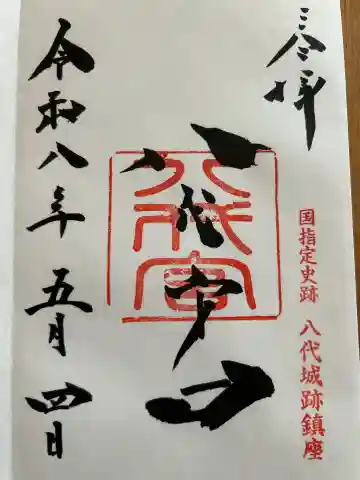 奉拝
国指定史跡 八代城跡鎮座
八代宮
八代宮
令和八年 五月 四日